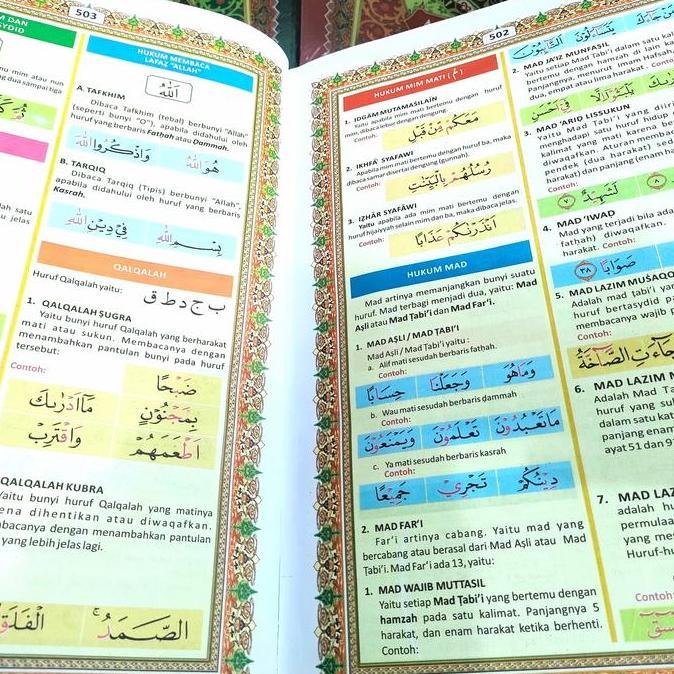 503
HUKUM MEMBACA
LAFAZ "ALLAH"
اَللّٰهُ
A. TAFKHIM
Dibaca Tafkhim (tebal) berbunyi "Allah"
(seperti bunyi "O"), apabila didahului oleh
huruf yang berbaris Fatḥah atau Dammah.
هُوَ اللّٰهُ وَاذْكُرُوا اللّٰهَ
B. TARQIQ
Dibaca Tarqiq (Tipis) berbunyi "Allah",
apabila didahului oleh huruf yang berbaris
Kasrah.
بِسْمِ اللّٰهِ فِيْ دِيْنِ اللّٰهِ
QALQALAH
Huruf Qalqalah yaitu: ب ج د ط ق
1. QALQALAH ṢUGRA
Yaitu bunyi huruf Qalqalah yang berharakat
mati atau sukun. Membacanya dengan
menambahkan pantulan bunyi pada huruf
tersebut:
Contoh:
ضَبْحًا
بِمَجْنُوْنٍ مَآ اَدْرٰىكَ
اَطْعَمَهُمْ وَاقْتَرِبْ
QALQALAH KUBRA
Yaitu bunyi huruf Qalqalah yang matinya
karena dihentikan atau diwaqafkan.
membacanya dengan menambahkan pantulan
yang lebih jelas lagi.
الصَّمَدُ الْفَلَقِ
502
HUKUM MIM MATI ( مْ )
1. IDGĀM MUTAMAṠILAIN
Yaitu apabila mim mati bertemu dengan huruf
mim, dibaca lebur dengan dengung.
Contoh: مَعَكُمْ مِنْ قَبْلِ
2. IKHFĀ' SYAFAWI
Apabila mim mati bertemu dengan huruf ba, maka
dibaca samar disertai dengung (gunnah).
Contoh: رُسُلُهُمْ بِالْبَيِّنٰتِ
3. IẒHĀR SYAFĀWI
Yaitu apabila ada mim mati bertemu dengan
huruf hijaiyyah selain mim dan ba, maka dibaca jelas.
Contoh: اَنْذَرْنٰكُمْ عَذَابًا
HUKUM MAD
Mad artinya memanjangkan bunyi suatu
huruf. Mad terbagi menjadi dua, yaitu: Mad
Aṣli atau Mad Ṭabi'i dan Mad Far'i.
1. MAD AṢLI / MAD ṬABI'I
Mad Aṣli / Mad Ṭabi'i yaitu :
a. Alif mati sesudah berbaris fathah.
Contoh:
وَمَا هُوَ وَجَعَلْنَا حِسَابًا
b. Wau mati sesudah berbaris dammah
Contoh:
مَا تَعْبُدُوْنَ تَعْلَمُوْنَ وَيَمْنَعُوْنَ
c. Ya mati sesudah berbaris kasrah
Contoh:
دِيْنُكُمْ تَجْرِيْ جَمِيْعًا
2. MAD FAR'I
Far'i artinya cabang. Yaitu mad yang
bercabang atau berasal dari Mad Aṣli atau Mad
Ṭabi'i. Mad Far'i ada 13, yaitu:
1. MAD WAJIB MUTTASIL
Yaitu setiap Mad Ṭabi'i yang bertemu dengan
hamzah pada satu kalimat. Panjangnya 5
harakat, dan enam harakat ketika berhenti.
Contoh:
2. MAD JA'IZ MUNFASIL
Yaitu setiap Mad Ṭabi'i dalam satu kal
bertemu dengan hamzah di lain ka
Panjangnya, menurut Imam Hafsah,
dua, empat atau lima harakat. Conto
3. MAD 'ARIḌ LISSUKUN
yaitu Mad Ṭabi'i yang diiri
menghadapi satu huruf hidup
kalimat yang mati karena ber
diwaqafkan. Aturan memb
pendek (dua harakat) seda
harakat) dan panjang (enam ha
لَشَهِيْدٌ
4. MAD 'IWAD
Mad yang terjadi bila ada
fatḥah) diwaqafkan.
harakat. Contoh:
صَوَابًا
5. MAD LAZIM MUṠAQQ
Adalah mad ṭabi'i yan
huruf bertasydid pa
membacanya wajib p
Contoh:
جَآءَتِ الصَّآخَّةُ
6. MAD LAZIM
Adalah Mad Ṭa
huruf yang suk
dalam satu kat
panjang enam
ayat 51 dan 9
7. MAD LAZ
adalah hu
permulaa
yang me
Huruf-hu
Contoh: